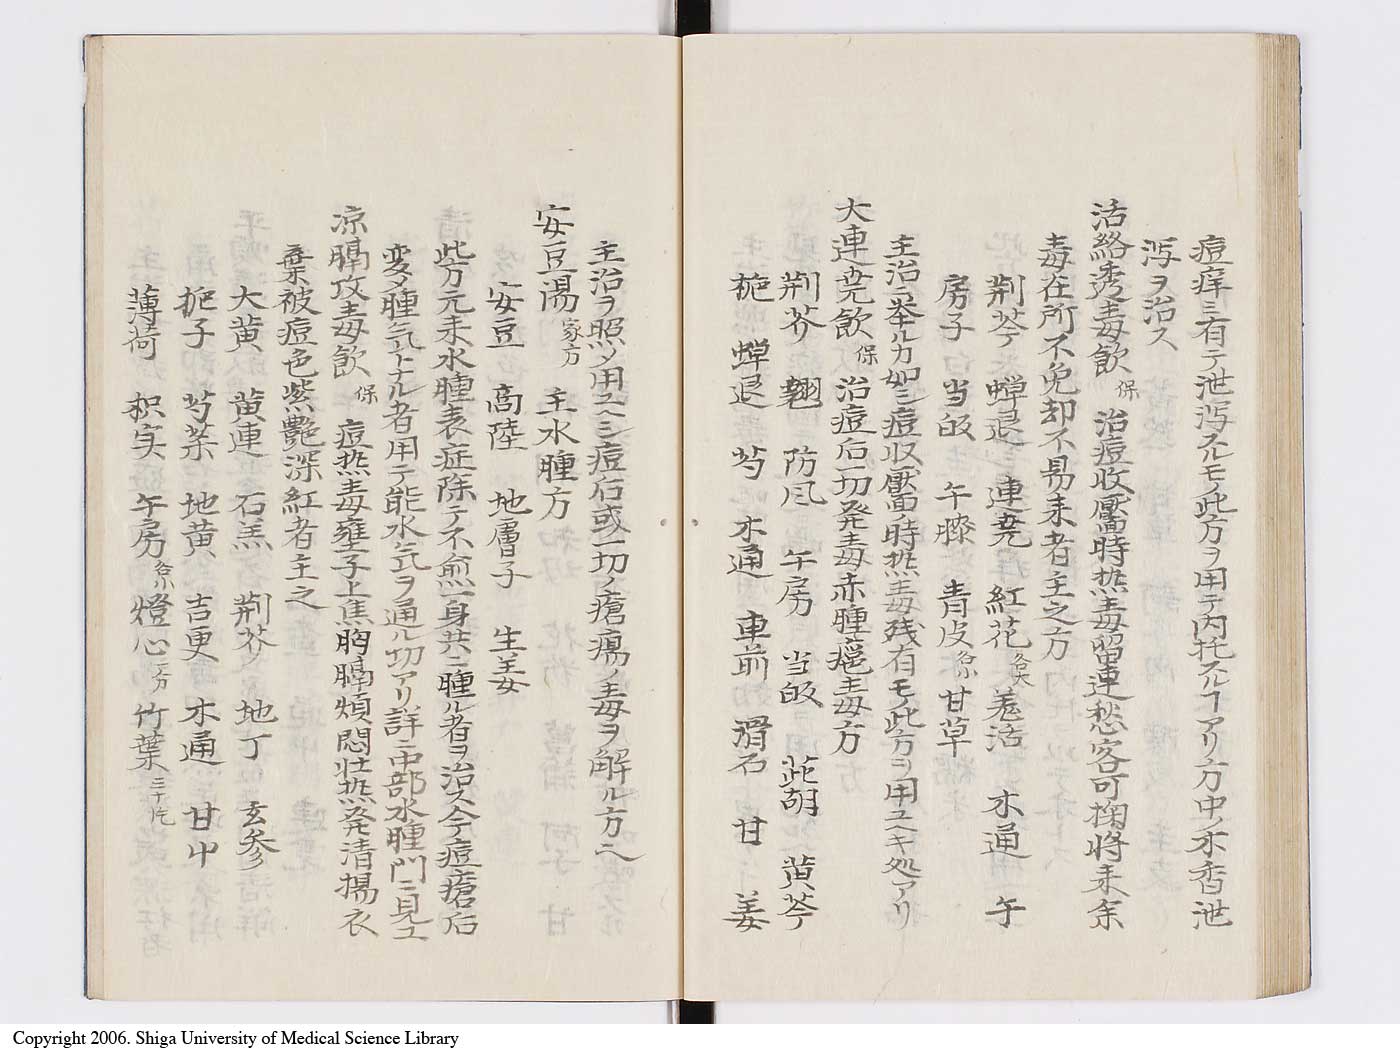 痘痒ミ有テ泄瀉スルモ此方ヲ用テ内托スルヿアリ方中ノ木香泄
瀉ヲ治ス
活絡透毒飲 保 治痘收靨時熱毒留連愁客可掬將来余
毒在所不免却不易来者主之方
荆芥 蝉退 連壳 紅花 各大 羗活 木通 午
房子 当皈 午膝 青皮 各小 甘草
主治ニ挙ルカ如シ痘収靨ノ時熱毒残有モノ此方ヲ用ユヘキ処アリ
大連壳飲 保 治痘后一切発毒赤腫瘟毒方
荆芥 翹 防风 午房 当皈 茈胡 黄芩
梔 蝉退 芍 木通 車前 滑石 甘 姜
主治ヲ照ツ用ユヘシ痘后或一切ノ瘡瘍ノ毒ヲ解ル方也
安豆湯 家方 主水腫方
安豆 商陸 地膚子 生姜
此方元来水腫表症除テ不愈一身共ニ腫ル者ヲ治ス今痘瘡后
変メ腫気トナル者用テ能水气ヲ通ル切アリ詳ニ中部水腫門ニ見エ
凉膈攻毒飲 保 痘热毒壅于上焦胸膈煩悶壮热発清揚衣
棄被痘色紫艷深紅者主之
大黄 黄連 石羔 荆芥 地丁 玄参
梔子 芍薬 地黄 吉更 木通 甘屮
薄荷 枳実 午房 各小 燈心 一方 竹葉 三十片
Copyright 2006. Shiga University of Medical Science Library